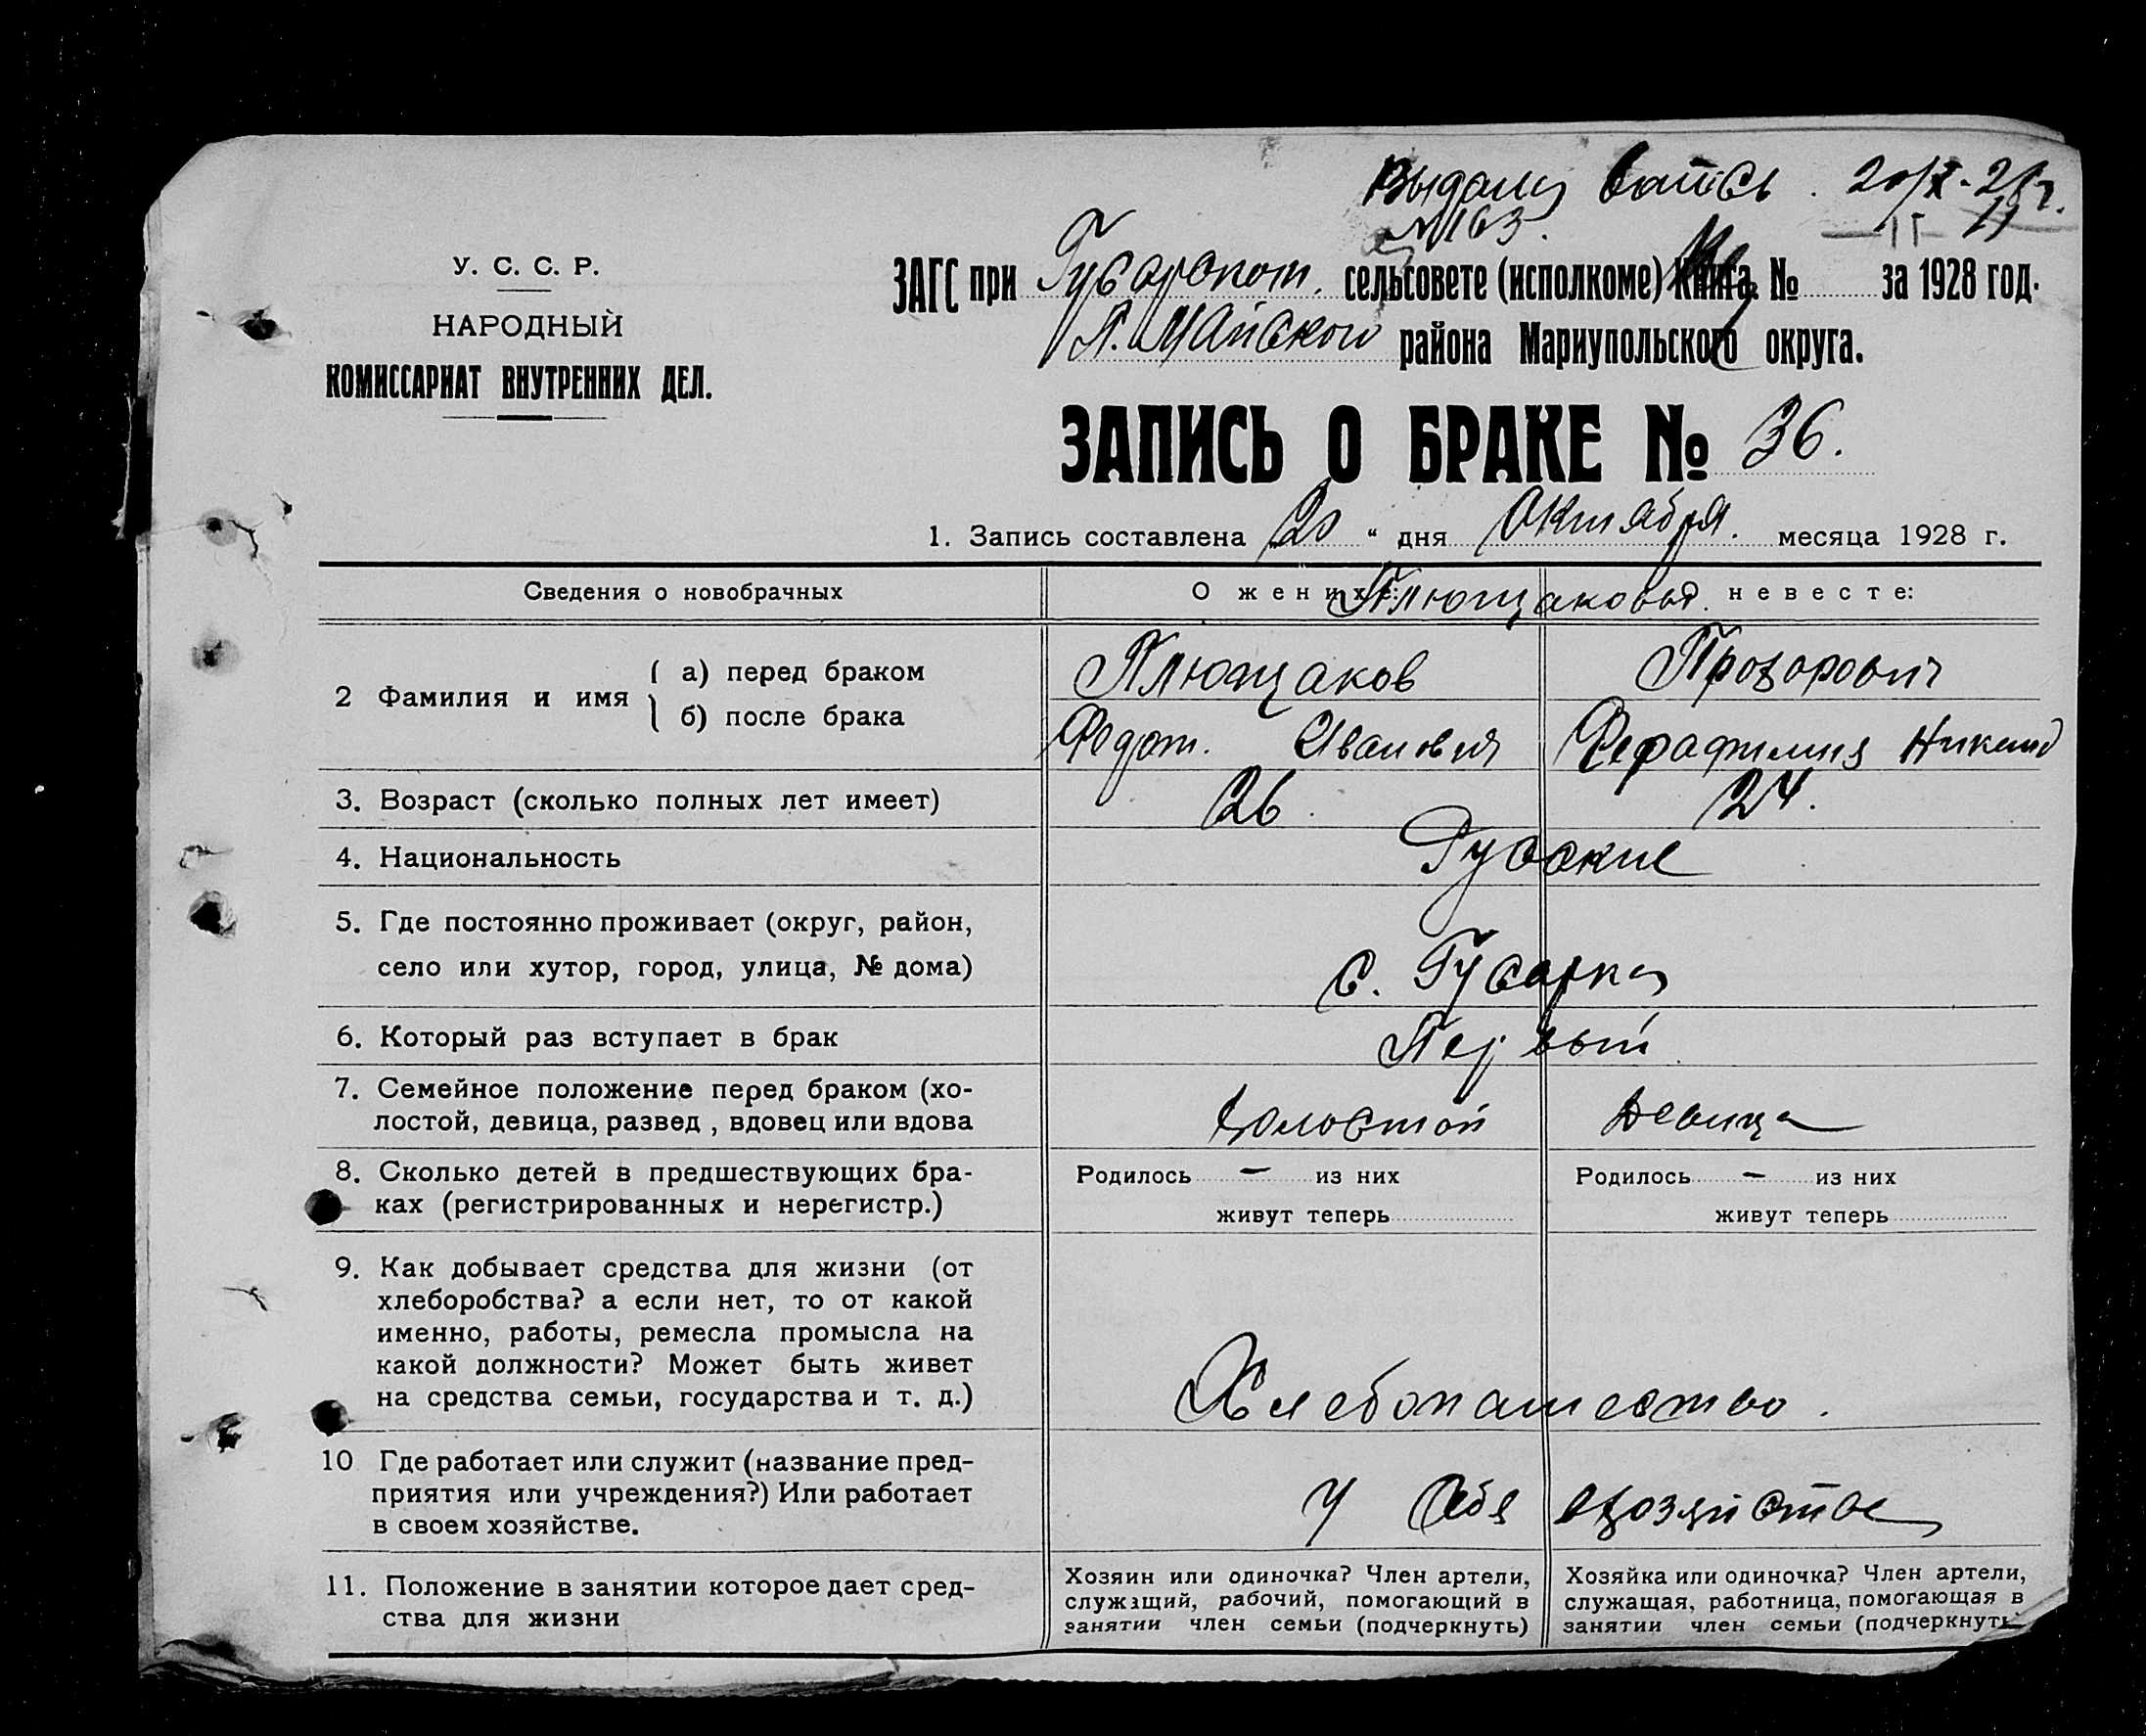 Выдана 20/X-28г.
№163.
У. С. С. Р.
НАРОДНЫЙ
КОМИССАРИАТ ВНУТРЕННИХ ДЕЛ.
ЗАГС при Гусарском. сельсовете (исполкоме) Книга № за 1928 год.
П. Майского района Мариупольского округа.
ЗАПИСЬ О БРАКЕ № 36.
1. Запись составлена 20 “ дня Октября. месяца 1928 г.
Сведения о новобрачных
О женихе:
О невесте:
Плющаковы.
2 Фамилия и имя
а) перед браком
б) после брака
Плющаков
Прозорович
Федот. Иванович
Серафимия
3. Возраст (сколько полных лет имеет)
26.
24.
4. Национальность
Русские
5. Где постоянно проживает (округ, район,
село или хутор, город, улица, № дома)
с. Гусарка
6. Который раз вступает в брак
Первый
7. Семейное положение перед браком (хо-
лостой, девица, развед , вдовец или вдова
Холостой
Девица
8. Сколько детей в предшествующих бра-
ках (регистрированных и нерегистр.)
Родилось — из них
живут теперь
Родилось — из них
живут теперь
9. Как добывает средства для жизни (от
хлеборобства? а если нет, то от какой
именно, работы, ремесла промысла на
какой должности? Может быть живет
на средства семьи, государства и т. д.)
Хлебопашество.
10 Где работает или служит (название пред-
приятия или учреждения?) Или работает
в своем хозяйстве.
У себя вхозяйстве
11. Положение в занятии которое дает сред-
ства для жизни
Хозяин или одиночка? Член артели,
служащий, рабочий, помогающий в
занятии член семьи (подчеркнуть)
Хозяйка или одиночка? Член артели,
служащая, работница, помогающая в
занятии член семьи (подчеркнуть)